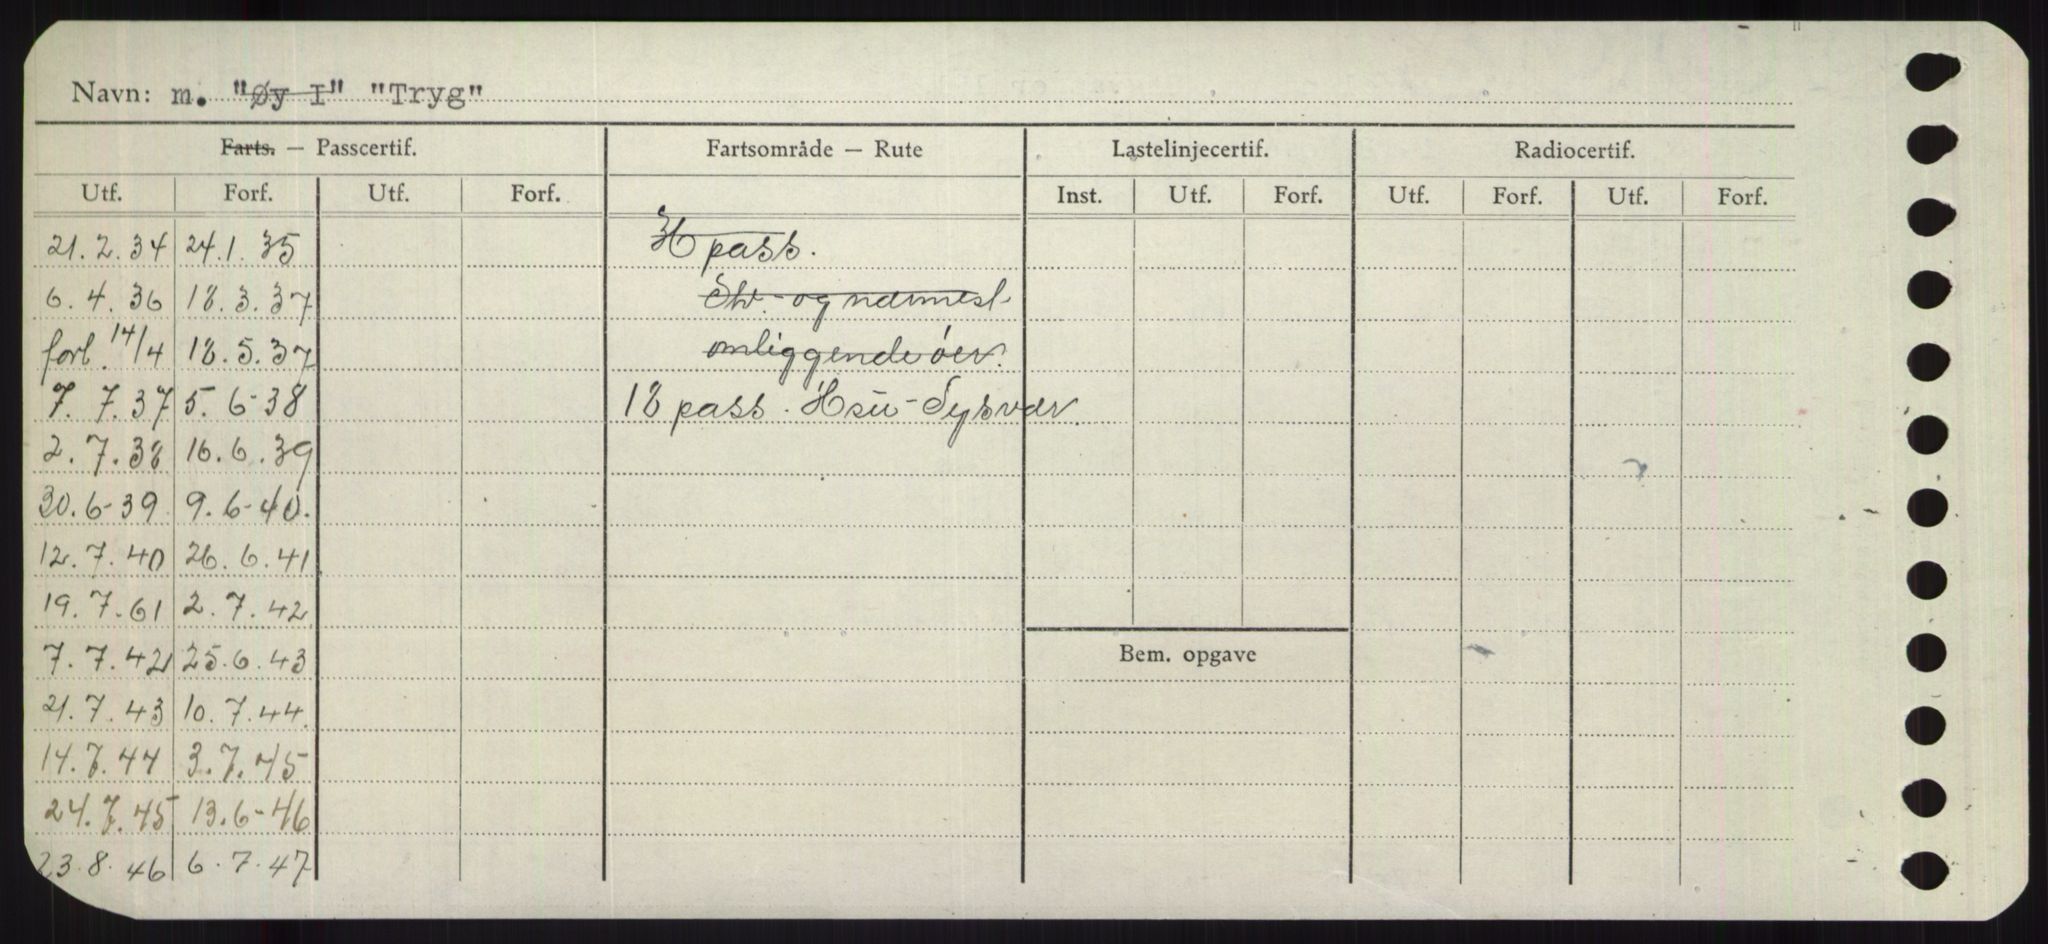 Navn: m. "Øy I" "Tryg"
Farts. — Passcertif. Fartsområde — Rute Lastelinjecertif. Radiocertif.
Utf. Forf. Utf. Forf. Inst. Utf. Forf. Utf. Forf. Utf. Forf.
21.2.34 24.1.35 pass.
6.4.36 18.3.37 og nærmest
forl. 14/4 18.5.37 omliggende øer.
7. 7.37 5. 6-38 18 pass. Hsu-Sysvær
2.7.38 16.6.39
30.6-39 9.6-40.
12.7.40 26.6.41
19.7.61 2.7.42
7.7.42 25.6.43
21.7.43 10.7.44.
14.7.44 3.7.45
24.7.45 13.6-46
23.8.46 6.7.47
Bem. opgave